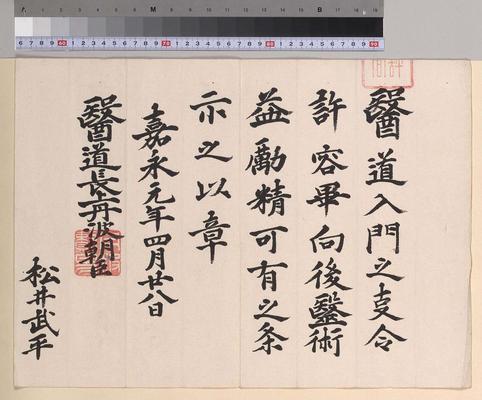 醫道入門之支令
許容畢向後毉術
益勵精可有之条
示之以章
嘉永元年四月廿八日
醫道長丹波朝臣
松井武平